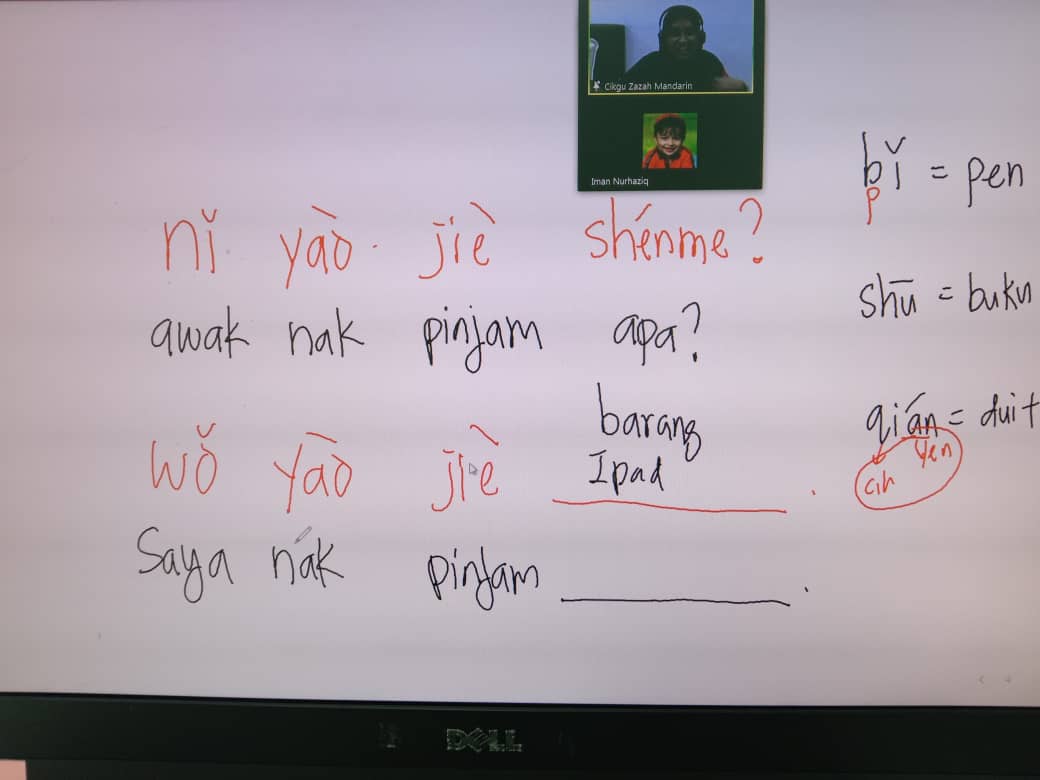 Cikgu Zazah Mandarin
Iman Nurhaziq
nǐ yàò jiè shénme?
awak nak pinjam apa?
wǒ yàò jiè ______.
barang
Ipad
Saya nak pinjam ______.
bǐ = pen
p
shū = buku
qián = duit
cih yen
DELL